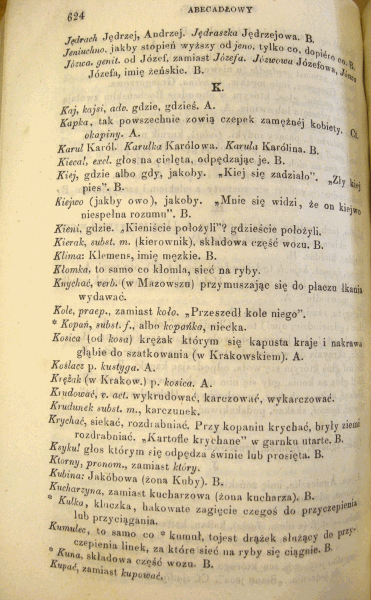 624
ABECADŁOWY
Jędrach Jędrzej, Andrzej. Jędraszka Jędrzejowa. B.
Jeniuchno, jakby stopień wyższy od jeno, tylko co, dopiéro co. B.
Józwa, genit. od Józef, zamiast Józefa. Józwowa Józefowa, Józwa
Józefa, imię żeńskie. B.
K.
Kaj, kajsi, adv. gdzie, gdzieś. A.
Kapka, tak powszechnie zowią czepek zamężnéj kobiety. Cb.
okapiny. A.
Karul Karól. Karulka Karólowa. Karula Karólina. B.
Kiecal, excl. głos na cielęta, odpędzając je. B.
Kiej, gdzie albo gdy, jakoby. „Kiej się zadziało”. „Zły kiej
pies”. B.
Kiejwo (jakby owo), jakoby. „Mnie się widzi, że on kiejwo
niespełna rozumu”. B.
Kieni, gdzie. „Kieniście położyli”? gdzieście położyli.
Kierak, subst. m. (kierownik), składowa część wozu. B.
Klima: Klemens, imię męzkie. B.
Kłomka, to samo co kłomla, sieć na ryby.
Knychać, verb. (w Mazowszu) przymuszając się do płaczu łkania
wydawać.
Kole, praep., zamiast koło. „Przeszedł kole niego”.
* Kopań, subst. f., albo kopańka, niecka.
Kosica (od kosa) krężak którym się kapusta kraje i nakrawa
głąbie do szatkowania (w Krakowskiem). A.
Koślacz p. kustyga. A.
Krężak (w Krakow.) p. kosica. A.
Krudować, v. act. wykrudować, karczować, wykarczować.
Krudunek subst. m., karczunek.
Krychać, siekać, rozdrabniać. Przy kopaniu krychać, bryły ziemi
rozdrabniać. „Kartofle krychane” w garnku utarte. B.
Ksyku! głos którym się odpędza świnie lub prosięta. B.
Ktorny, pronom., zamiast który.
Kubina: Jakóbowa (żona Kuby). B.
Kucharzyna, zamiast kucharzowa (żona kucharza). B.
* Kulka, kluczka, hakowate zagięcie czegoś do przyczepienia
lub przyciągania.
Kumulec, to samo co * kumuł, tojest drążek służący do przy-
czepienia linek, za które sieć na ryby się ciągnie. B.
* Kuna, składowa część wozu. B.
Kupać, zamiast kupować.